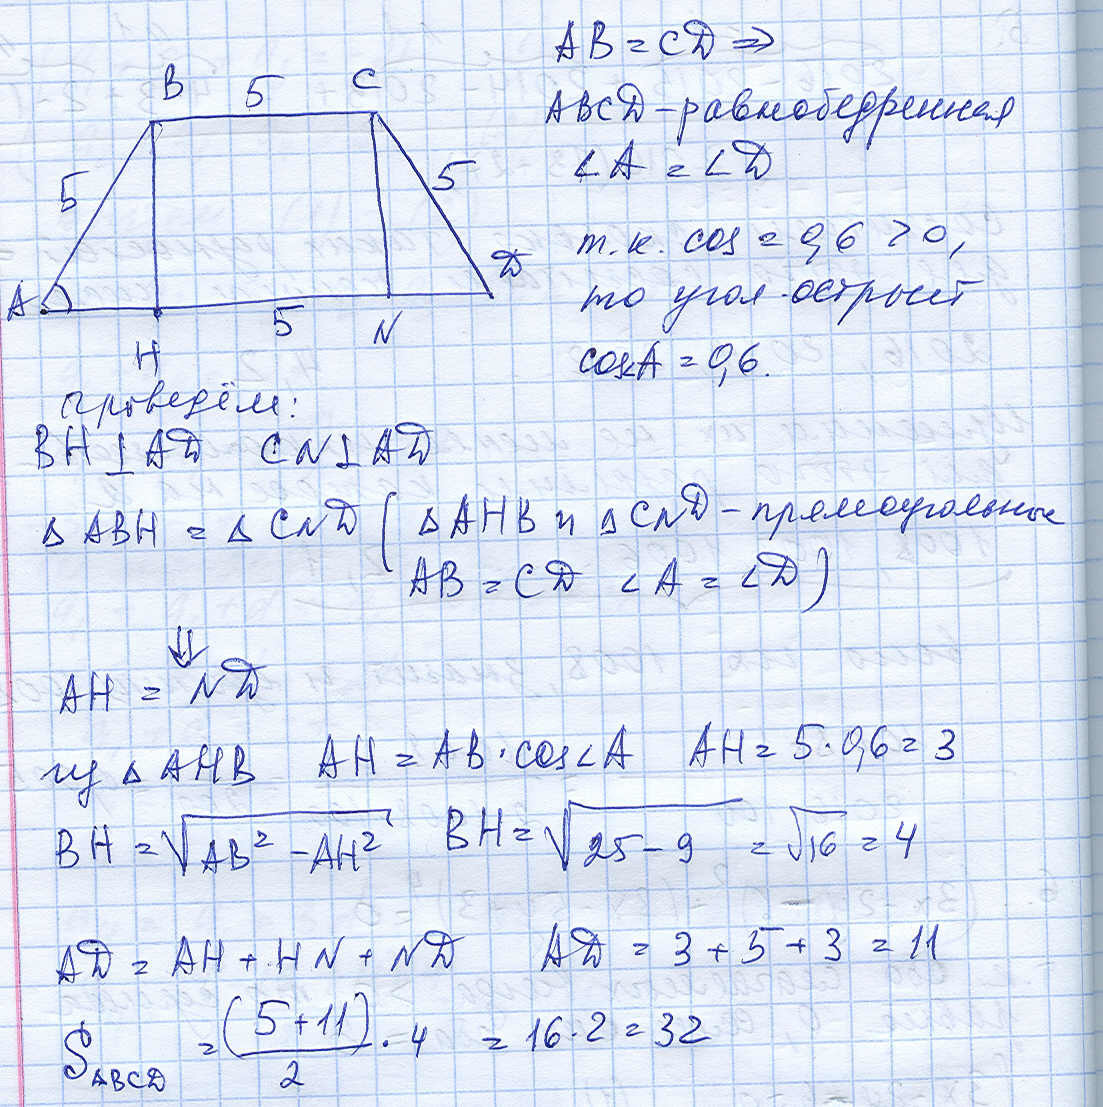 B 5 C
5 5
A D
H 5 N
AB = CD ⇒
ABCD - равнобедренная
∠A = ∠D
т.к. cos = 0,6 > 0,
то угол острый
cos∠A = 0,6.
проведём:
BH ⊥ AD CN ⊥ AD
Δ ABH = Δ CND ( Δ AHB и Δ CND - прямоугольные
AB = CD ∠A = ∠D )
⇓
AH = ND
из Δ AHB AH = AB · cos∠A AH = 5 · 0,6 = 3
BH = √(AB² - AH²) BH = √(25 - 9) = √16 = 4
AD = AH + HN + ND AD = 3 + 5 + 3 = 11
S_ABCD = (5 + 11)/2 · 4 = 16 · 2 = 32